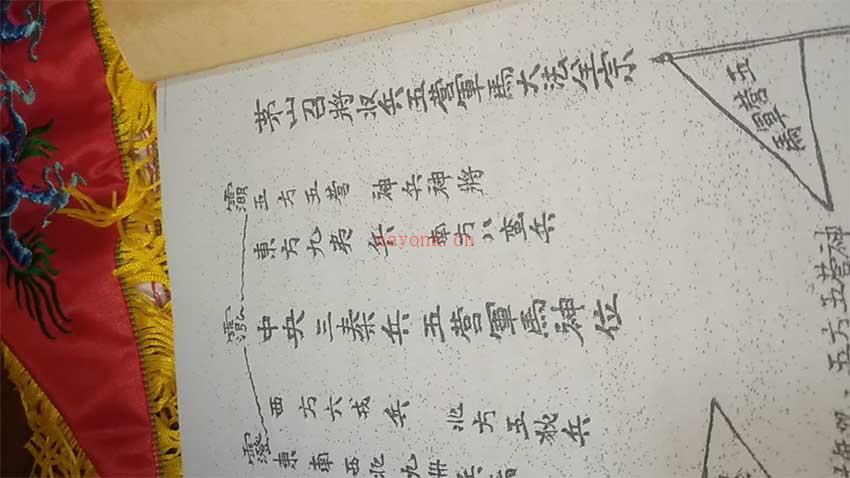 茅山召將収兵五營軍馬大法全宗
五方五營 神兵神將
東方九夷 兵 南方八蛮兵
中央三秦兵五營軍馬神位
西方六戎兵 北方五狄兵
東南西北
五營軍馬
五方五營神
nayona.cn